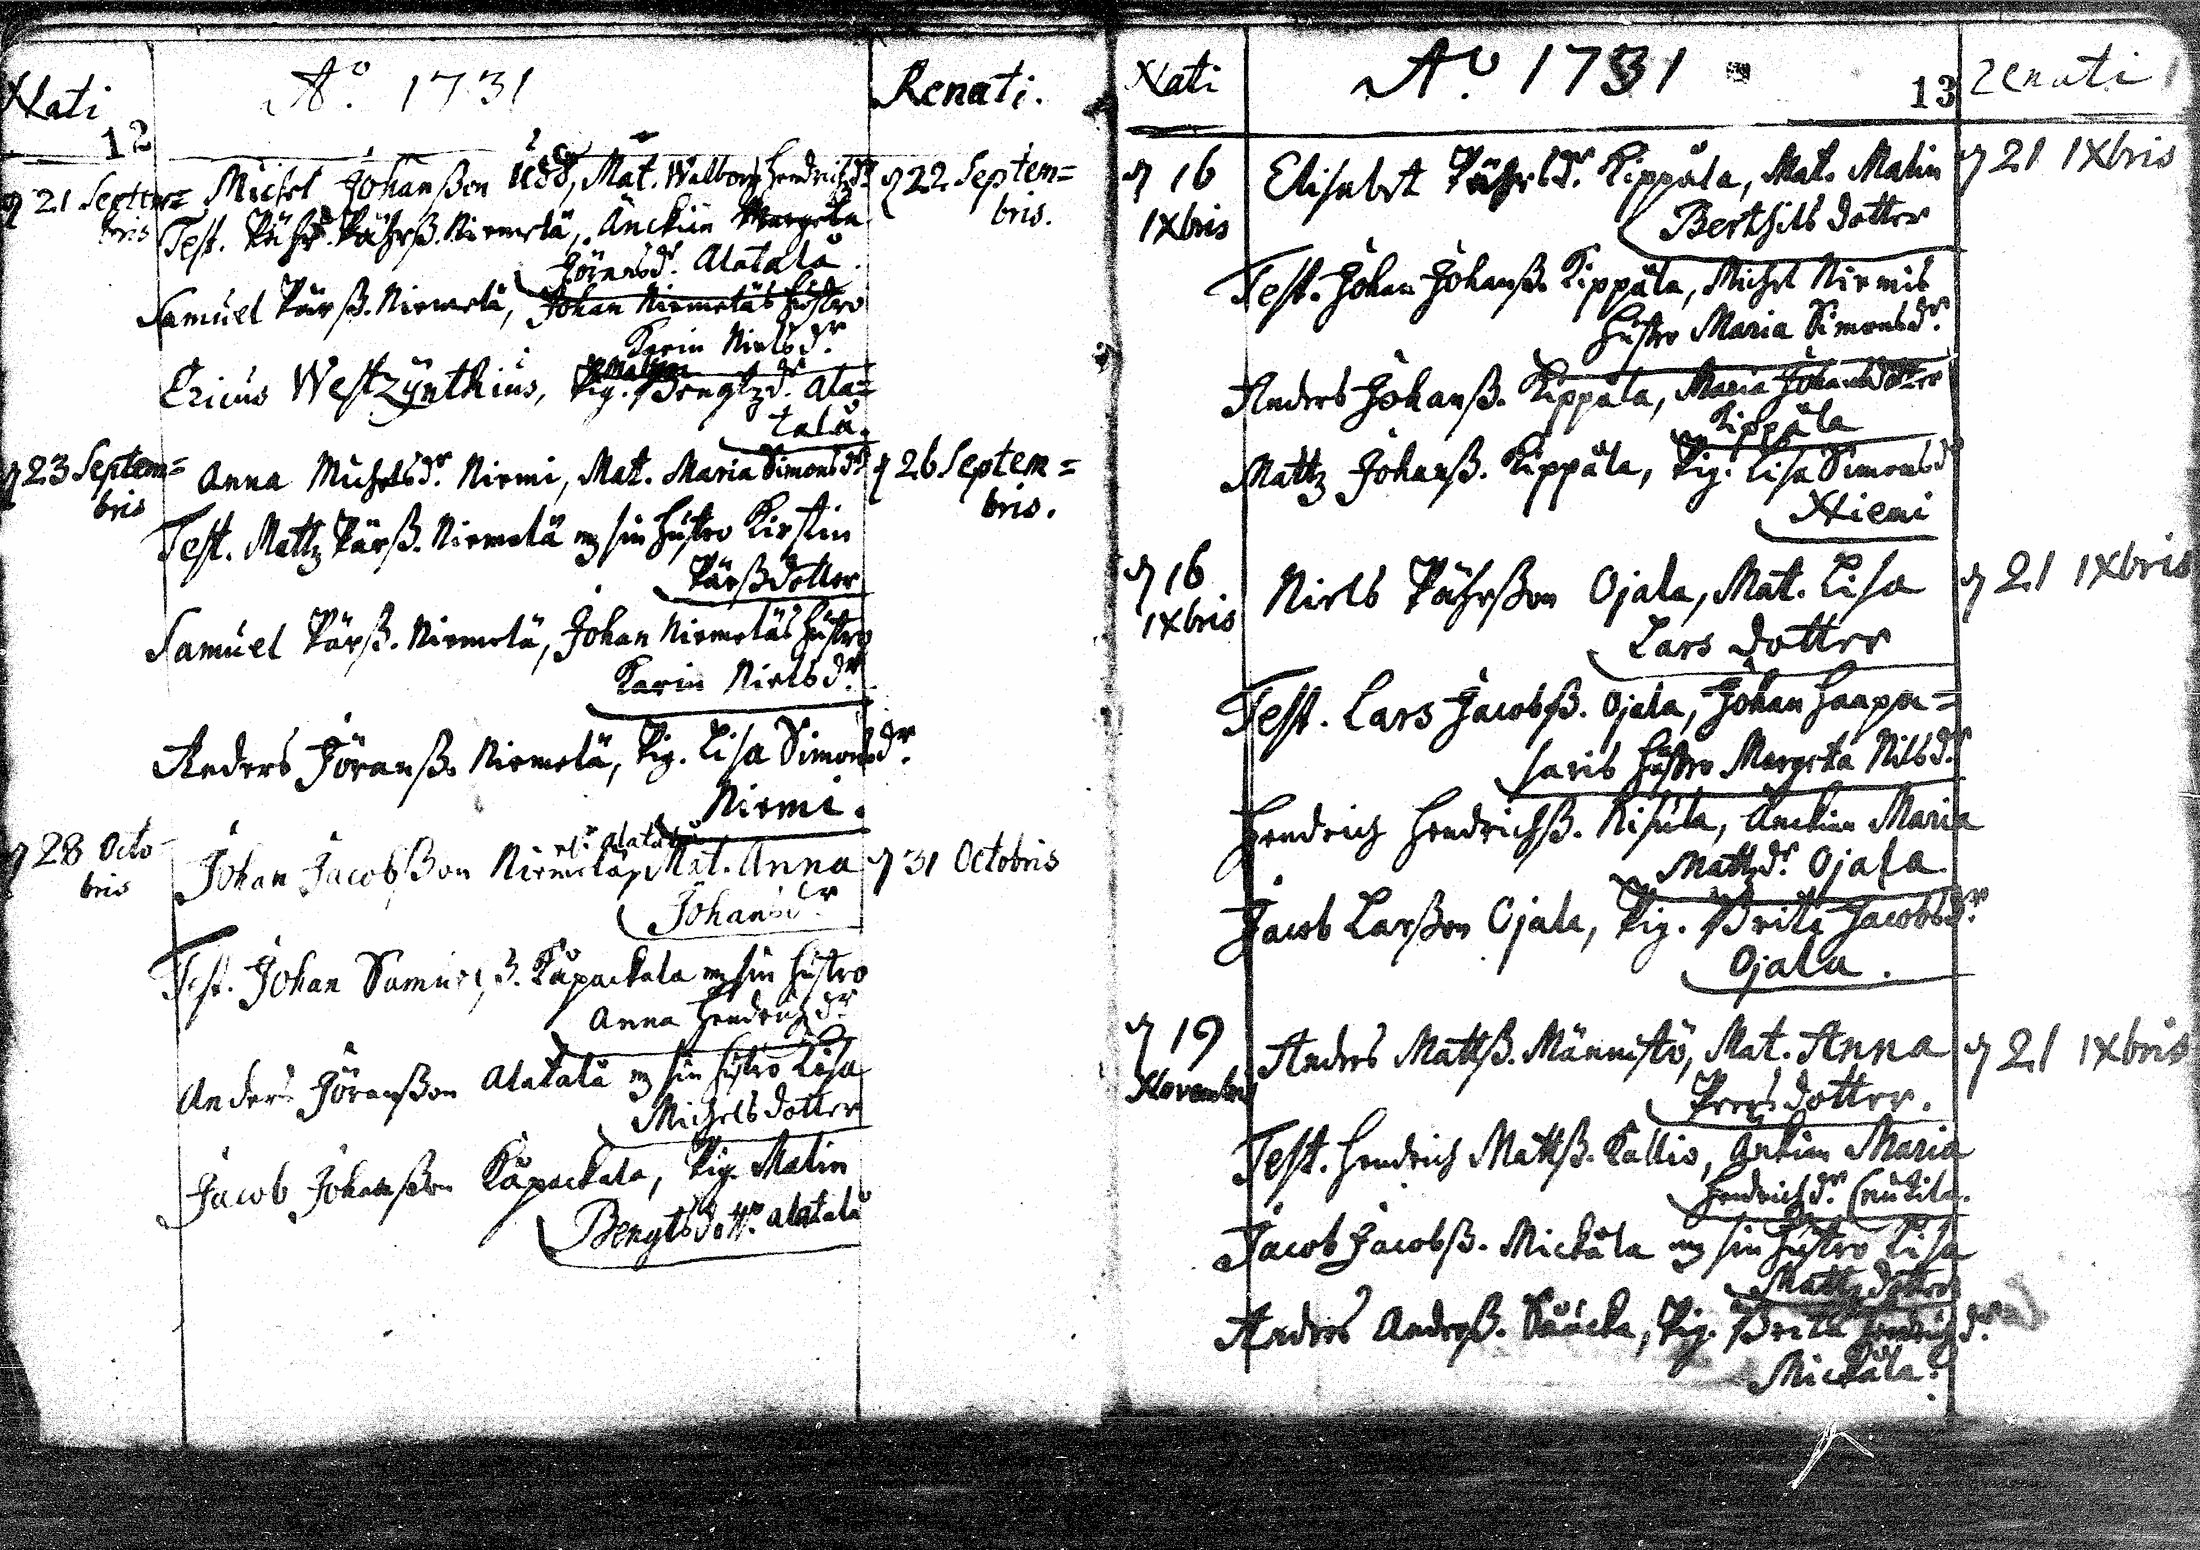 Nati
Aº. 1731
Renati.
12
d 21 Septem=
bris
Michel Johanßon Udd, Mat. Walborg Hendrichsdr.
d 22 Septem=
bris.
Test. Påhr Påhrß. Niemelä, Änckian Margeta
Jöransdr. Alatalu
Samuel Pärß. Niemelä, Johan Niemeläs Hustro
Karin Nielsdr.
Ericus Westzÿnthius, Pig. Malin Bengtzdr. Ala=
talu.
d 23 Septem=
bris
Anna Michelsdr. Niemi, Mat. Maria Simonsdr.
d 26 Septem=
bris.
Test. Mattz Pärß. Niemelä m sin Hustro Kirstin
Pärßdotter
Samuel Pärß. Niemelä, Johan Niemeläs Hustro
Karin Nielsdr.
Anders Jöranß. Niemelä, Pig. Lisa Simonsdr.
Niemi.
d 28 Octo
bris
Johan Jacobßon Niemelä, Mat. Anna
Johansdr.
d 31 Octobris
Test. Johan Samuelß. Kåpackala m sin Hustro
Anna Hendrichzdr.
Anders Jöranßon Alatalu m sin Hustro Lisa
Michelsdotter
Jacob Johanßon Kåpackala, Pig. Malin
Bengtsdottr. Alatalu
Nati
Aº. 1731
13
Renati
d 16
IXbris
Elisabet Påhrsdr. Kippåla, Mat. Malin
Berthils dotter
d 21 IXbris
Test. Johan Johanß. Kippåla, Michel Niemis
Hustro Maria Simonsdr.
Anders Johanß. Kippåla, Maria Johansdotter
Kippåla
Mattz Johanß. Kippåla, Pig. Lisa Simonsdr
Niemi
d 16
IXbris
Niels Påhrßon Ojala, Mat. Lisa
Lars dotter
d 21 IXbris
Test. Lars Jacobß. Ojala, Johan Haapa=
saris Hustro Margeta Nilsdr.
Hendrich Hendrichß. Änckian Maria
Mattzdr. Ojala.
Jacob Larßon Ojala, Pig. Brita Jacobsdr.
Ojala.
d 19
Novembris
Anders Mattß. Männistö, Mat. Anna
Peersdotter.
d 21 IXbris
Test. Hendrich Mattß. Kallio, Ankian Maria
Hendrichdr.
Jacob Jacobß. Mickåla m sin Hustro Lisa
Mattzdotter
Anders Andersß. Pig. Brita Hendrichzdr.
Mickåla.